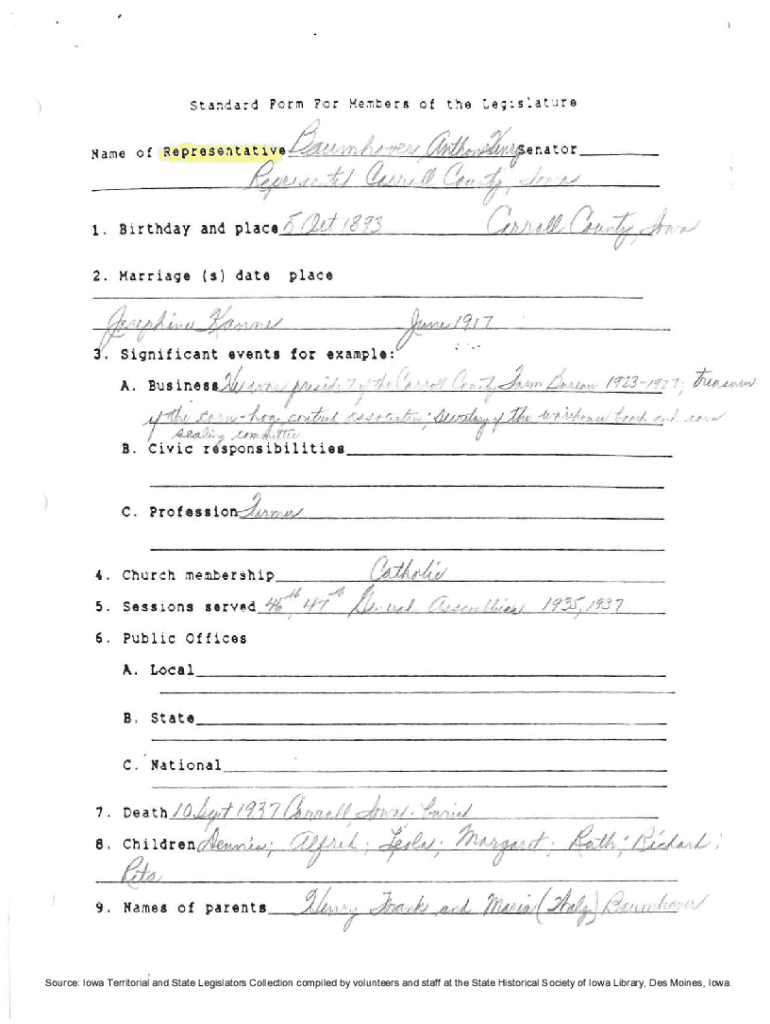 Standard Form For Members of the Legislature
Name of Representative Baumhover, Anthony Henry Senator
Represented Carroll County, Iowa
1. Birthday and place 5 Oct 1893 Carroll County, Iowa
2. Marriage (s) date place
Josephine Kanne June 1917
3. Significant events for example:
A. Business He was president of the Carroll County Farm Bureau 1923-1927; treasurer
of the corn-hog control association; Secretary of the warehouse board and corn
sealing committee
B. Civic responsibilities
C. Profession Farmer
4. Church membership Catholic
5. Sessions served 46th, 47th General Assemblies 1935, 1937
6. Public Offices
A. Local
B. State
C. National
7. Death 10 Sept 1937 Carroll, Iowa. buried
8. Children Dennis; Alfred; Leola; Margaret; Ruth; Richard;
Rita
9. Names of parents Henry Frank and Maria Baumhover
Source: Iowa Territorial and State Legislators Collection compiled by volunteers and staff at the State Historical Society of Iowa Library, Des Moines, Iowa.